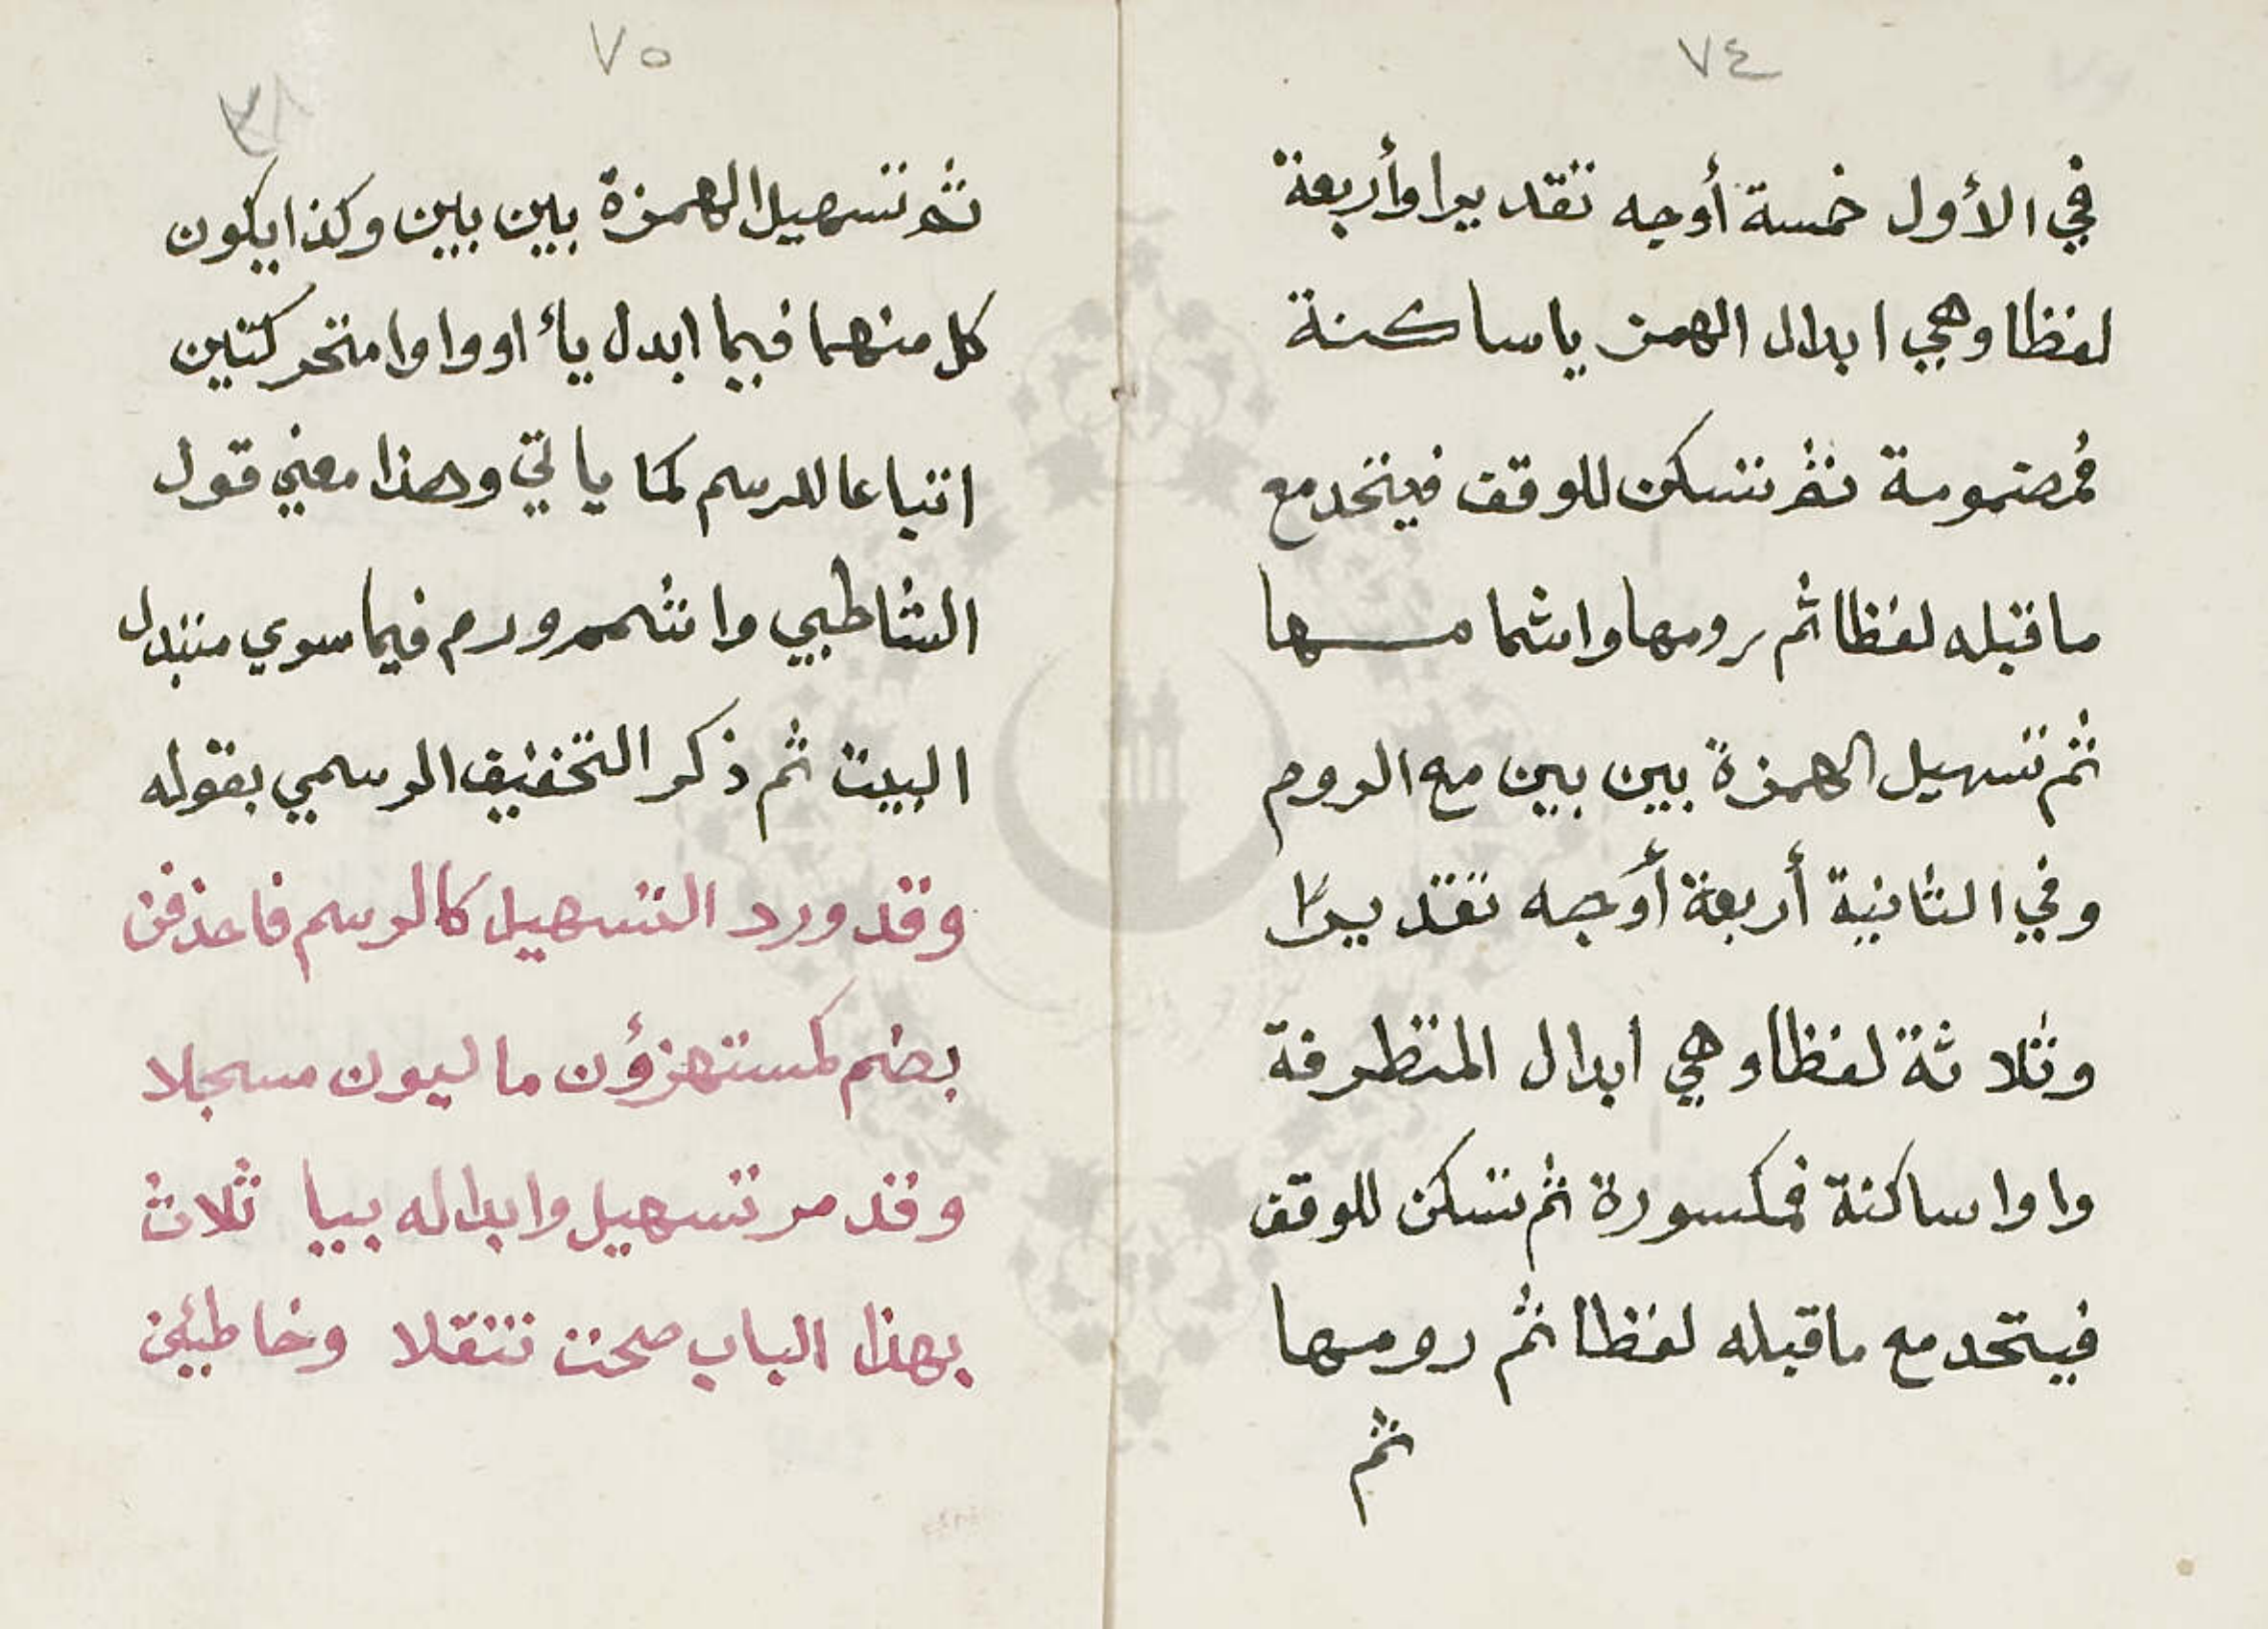 ٧٤
في الأول خمسة أوجه تقديرا وأربعة
لفظا وهي ابدال الهمز ياساكنة
فمضمومة ثم تسكن للوقف فيتحد مع
ماقبله لفظا ثم رومها واشمامها
ثم تسهيل الهمزة بين بين مع الروم
وفي الثانية أربعة أوجه تقديرًا
وثلاثة لفظا وهي ابدال المتطرفة
واوا ساكنة فمكسورة ثم تسكن للوقف
فيتحد مع ماقبله لفظا ثم رومها
ثم
٧٥
ثم تسهيل الهمزة بين بين وكذا يكون
كل منهما فيما ابدل ياً اوواوا متحركتين
اتباعا للرسم كما ياتي وهذا معني قول
الشاطبي واشمم ورم فيما سوي متبدل
البيت ثم ذكر التخفيف الرسمي بقوله
وقد ورد التسهيل كالرسم فاحذفن
بضم كمستهزؤن ماليون مسجلا
وقد مر تسهيل وابداله بيا ثلاث
بهذا الباب صحت تنقلا وخاطئين